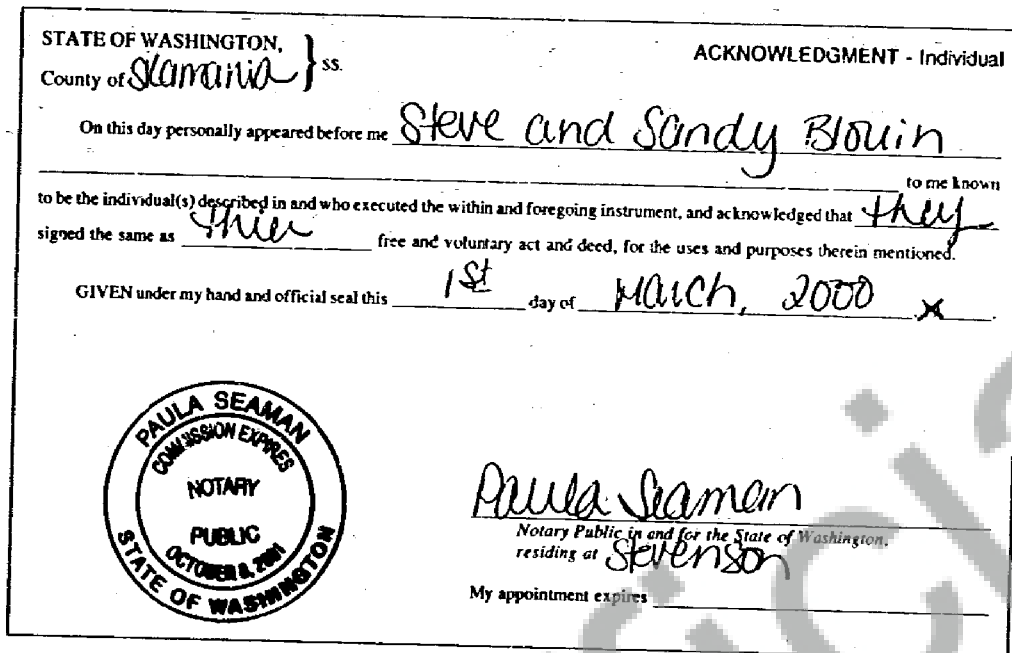 STATE OF WASHINGTON,
County of Skamania } ss.
ACKNOWLEDGMENT - Individual
On this day personally appeared before me Steve and Sandy Blouin
to me known
to be the individual(s) described in and who executed the within and foregoing instrument, and acknowledged that they
signed the same as thier free and voluntary act and deed, for the uses and purposes therein mentioned.
GIVEN under my hand and official seal this 1st day of March, 2000 x
PAULA SEAMAN
COMMISSION EXPIRES
NOTARY
PUBLIC
OCTOBER 8, 2001
STATE OF WASHINGTON
Paula Seaman
Notary Public in and for the State of Washington,
residing at Stevenson
My appointment expires